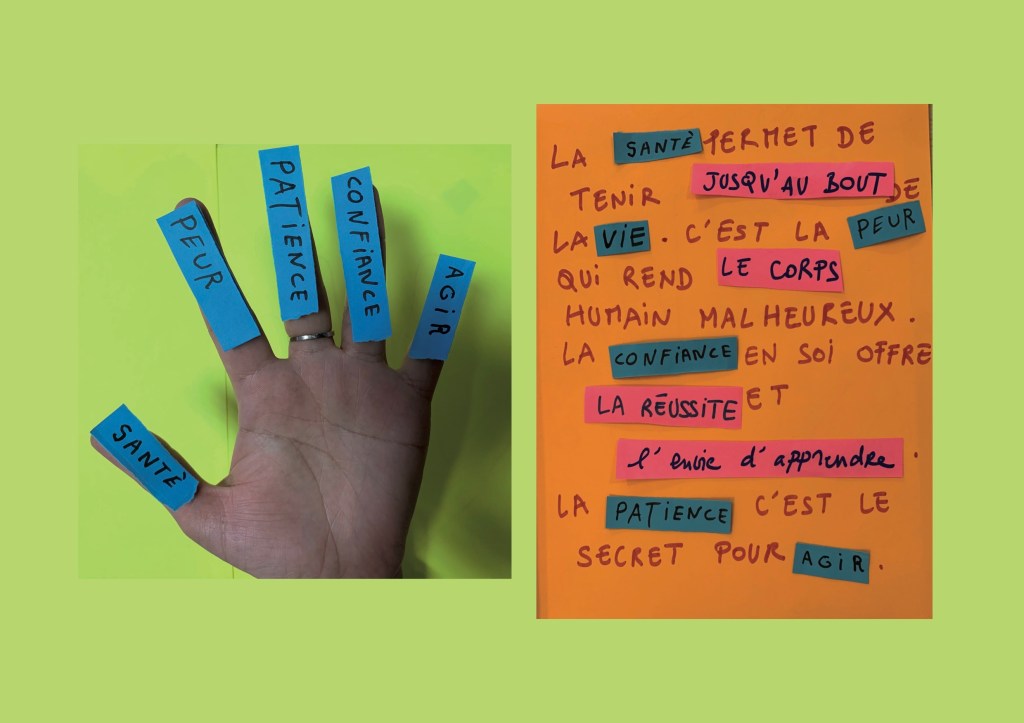 SANTÈ
PEUR
PATIENCE
CONFIANCE
AGIR
LA SANTÈ PERMET DE
TENIR JUSQU'AU BOUT DE
LA VIE. C'EST LA PEUR
QUI REND LE CORPS
HUMAIN MALHEUREUX.
LA CONFIANCE EN SOI OFFRE
LA RÉUSSITE ET
l'envie d'apprendre.
LA PATIENCE C'EST LE
SECRET POUR AGIR.